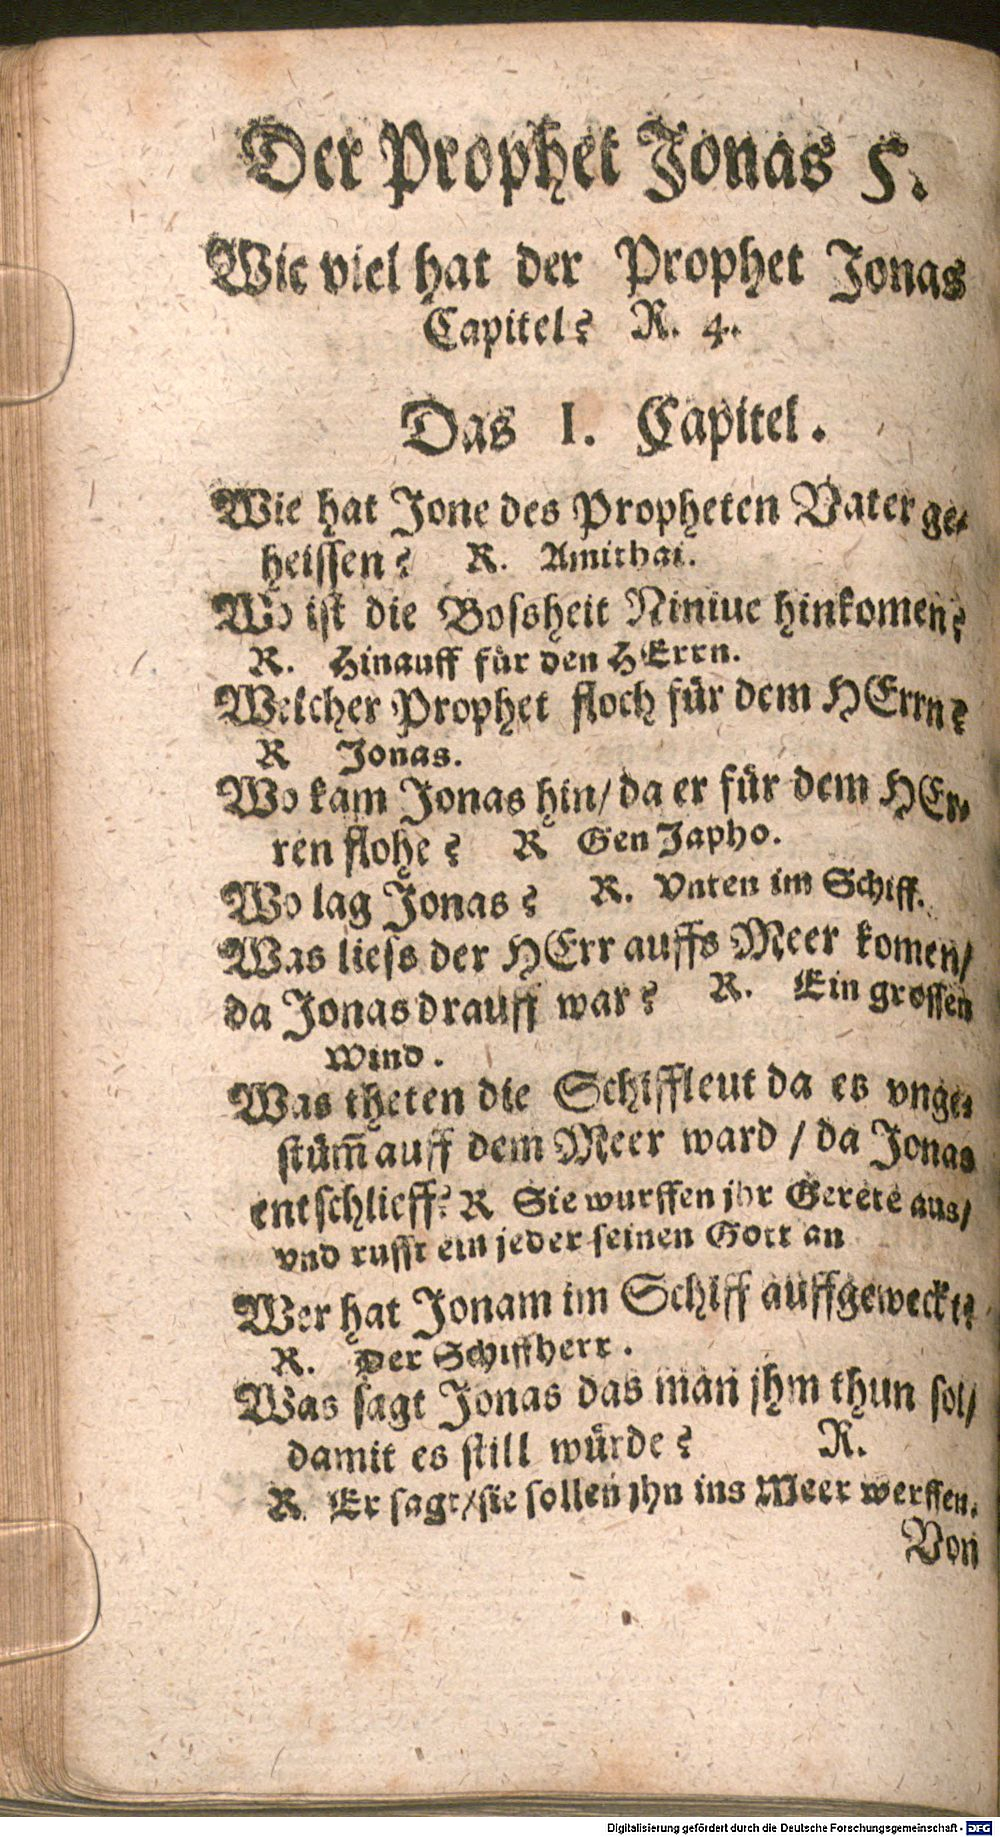 Der Prophet Jonas 5.
Wie viel hat der Prophet Jonas
Capitel? R. 4.
Das I. Capitel.
Wie hat Jone des Propheten Vater ge-
heissen? R. Amithai.
Wo ist die Bossheit Niniue hinkomen?
R. Hinauff für den HErrn.
Welcher Prophet floch für dem HErrn?
R Jonas.
Wo kam Jonas hin/ da er für dem HEr-
ren flohe? R Gen Japho.
Wo lag Jonas? R. Vnten im Schiff.
Was liess der HErr auffs Meer komen/
da Jonas drauff war? R. Ein grossen
Wind.
Was theten die Schiffleut da es vnge-
stüm̃ auff dem Meer ward / da Jonas
entschlieff? R Sie wurffen jhr Gerete aus/
vnd rufft ein jeder seinen Gott an
Wer hat Jonam im Schiff auffgeweckt?
R. Der Schiffherr.
Was sagt Jonas das man jhm thun sol/
damit es still würde? R.
R. Er sagt/ sie sollen jhn ins Meer werffen.
Von
Digitalisierung gefördert durch die Deutsche Forschungsgemeinschaft - DFG